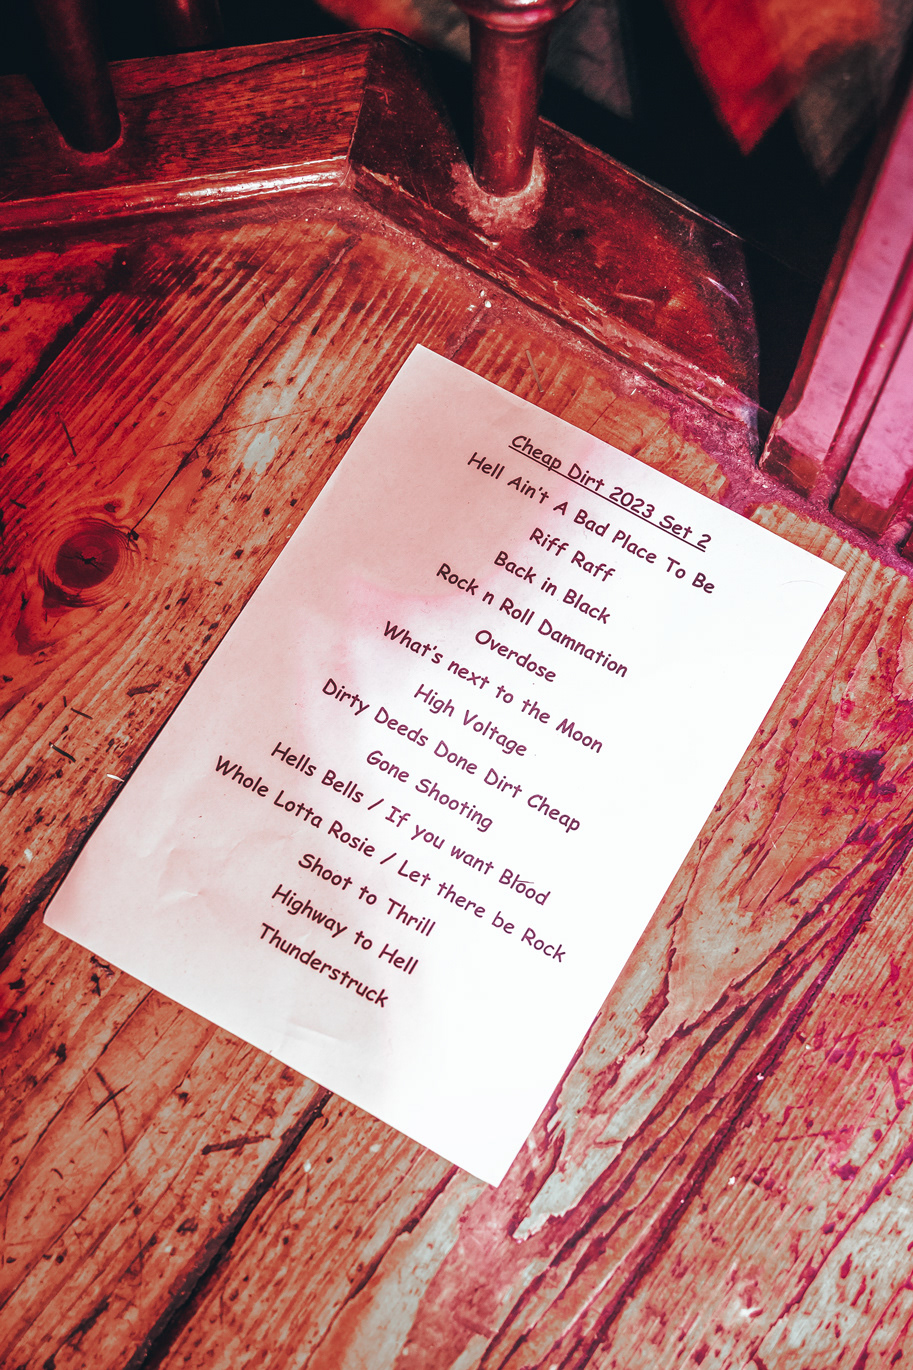 Cheap Dirt 2023 Set 2
Hell Ain't A Bad Place To Be
Riff Raff
Back in Black
Rock n Roll Damnation
Overdose
What's next to the Moon
High Voltage
Dirty Deeds Done Dirt Cheap
Gone Shooting
Hells Bells / If you want Blood
Whole Lotta Rosie / Let there be Rock
Shoot to Thrill
Highway to Hell
Thunderstruck